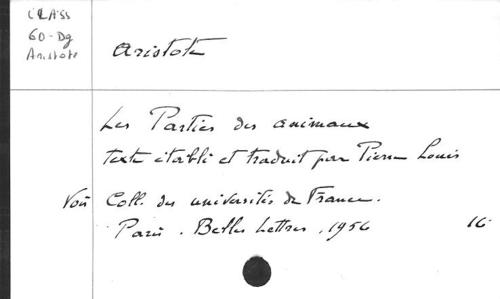 CLASS
60-Dg
Aristote
Aristote
Les Parties des animaux
texte établi et traduit par Pierre Louis
Voir Coll. des universités de France.
Paris. Belles Lettres, 1956 16